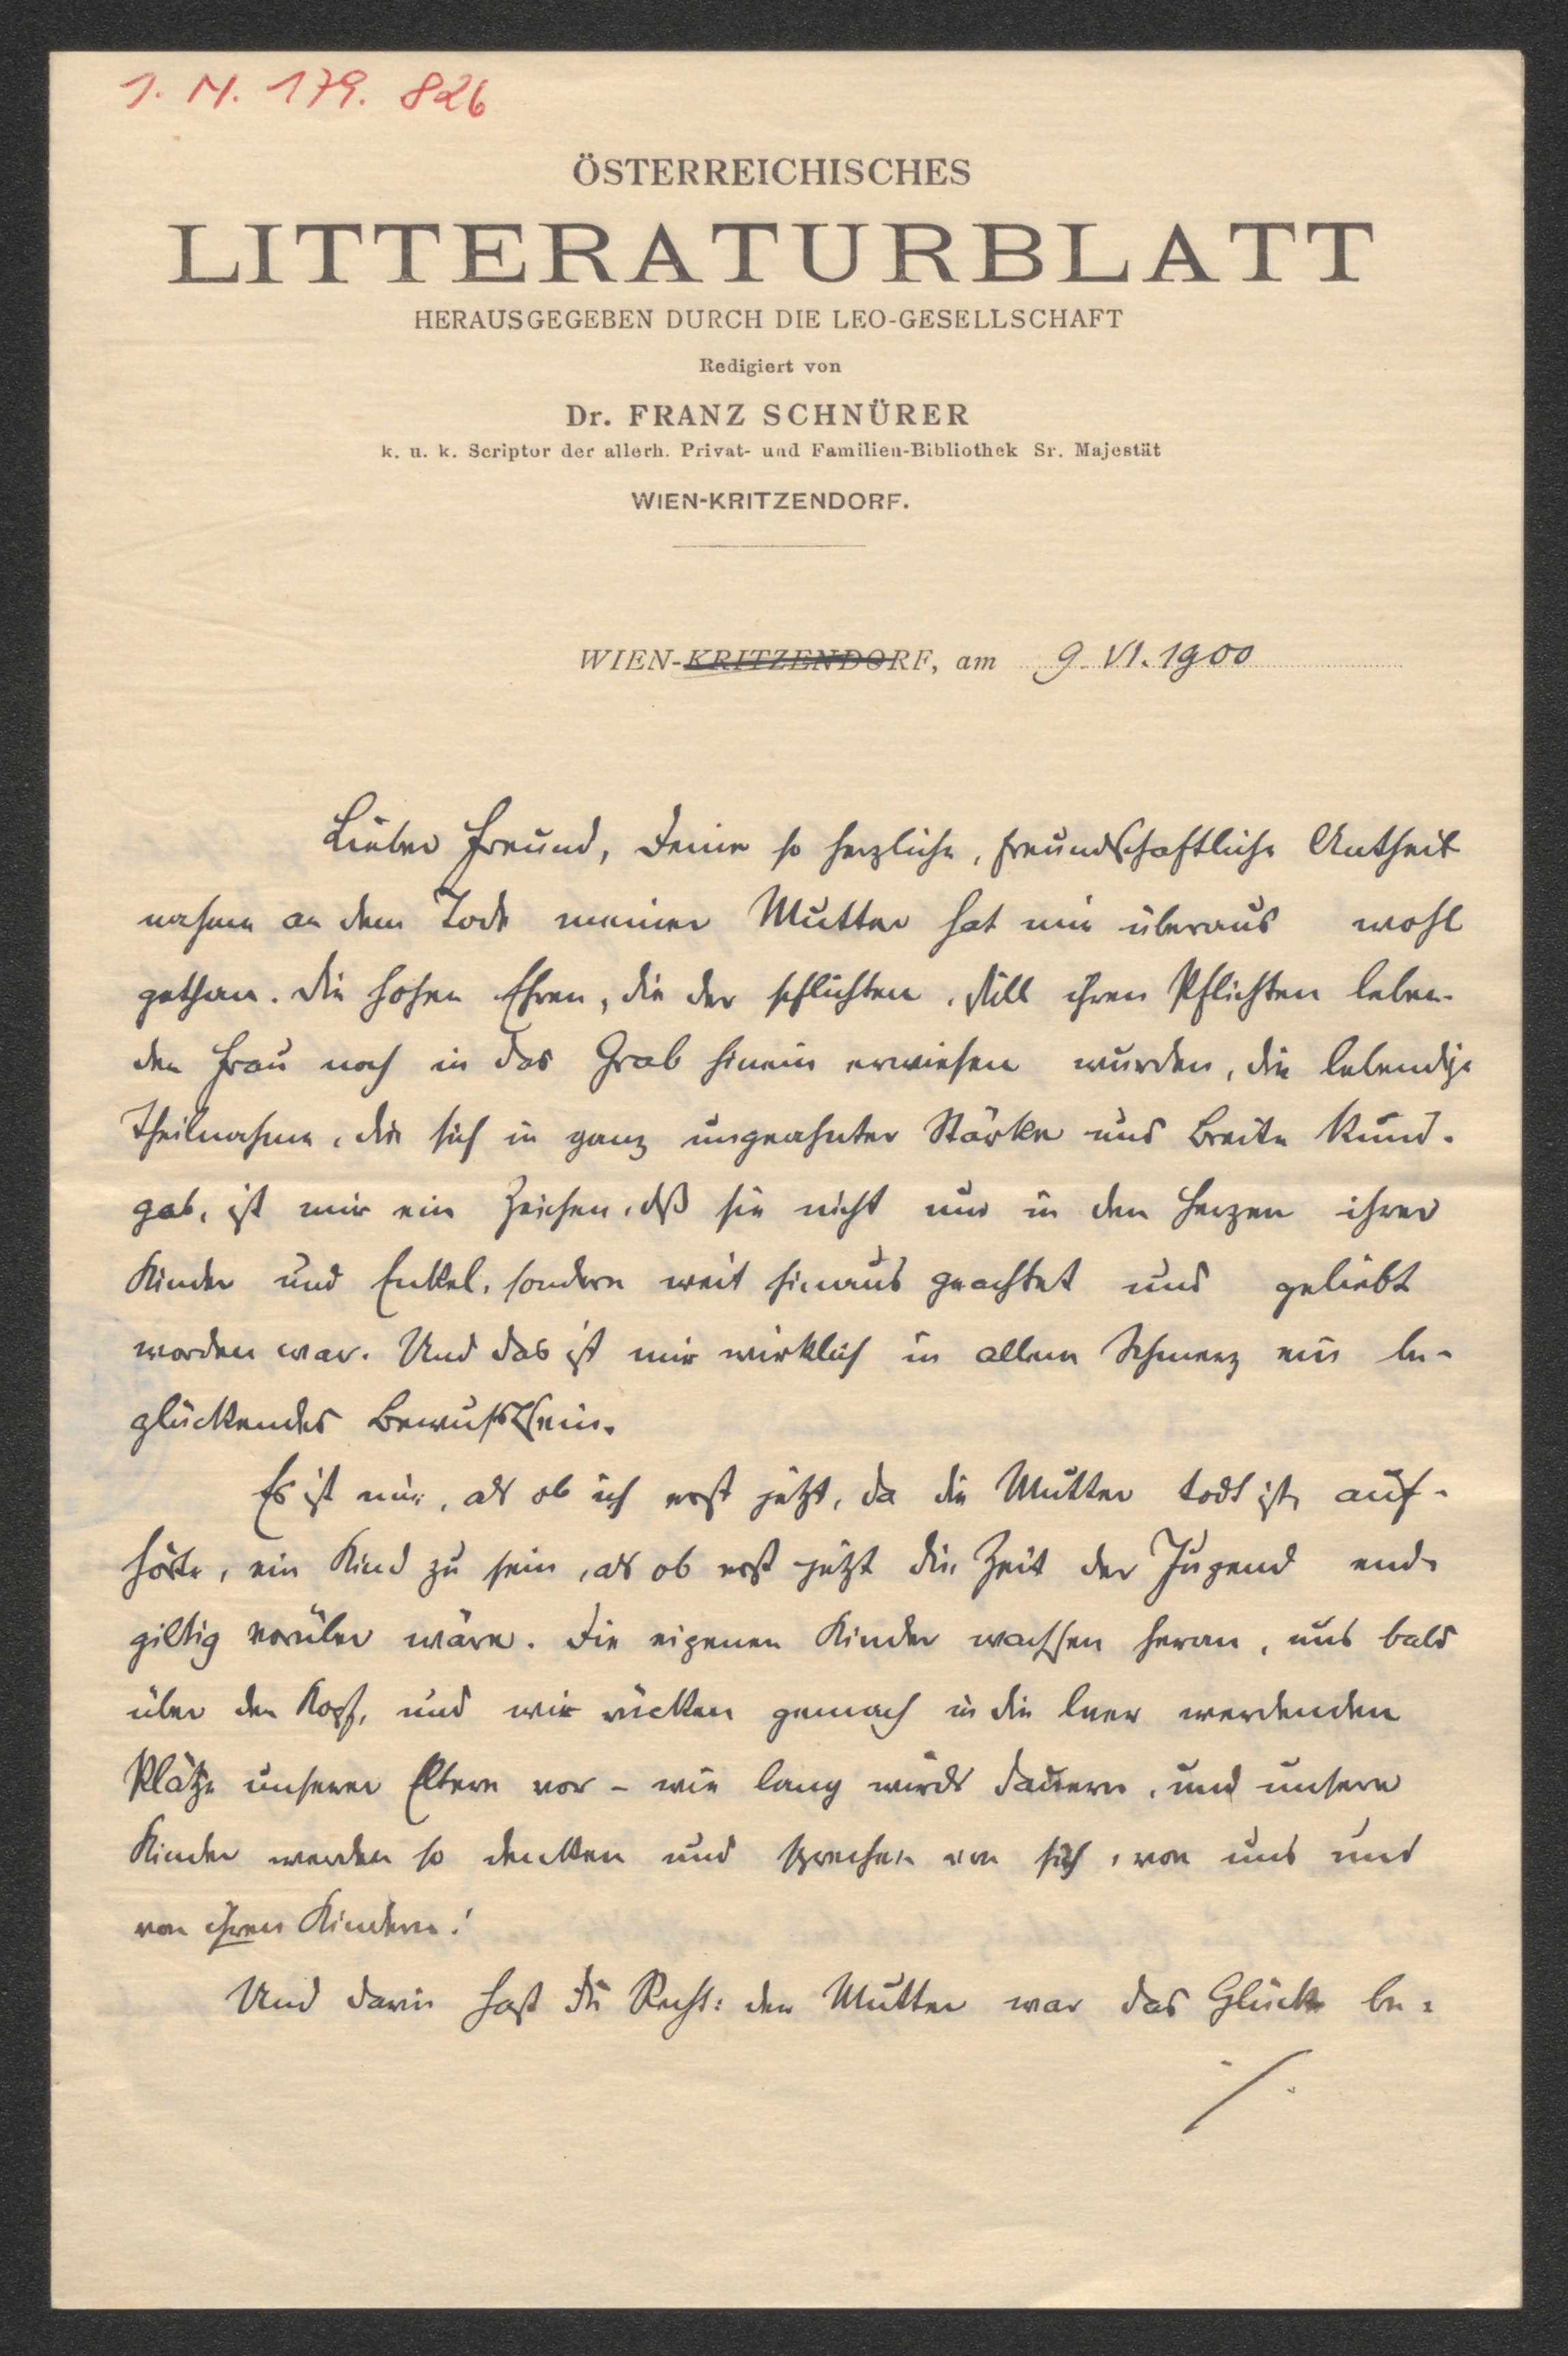 I. N. 179. 826
ÖSTERREICHISCHES
LITTERATURBLATT
HERAUSGEGEBEN DURCH DIE LEO-GESELLSCHAFT
Redigiert von
Dr. FRANZ SCHNÜRER
k. u. k. Scriptor der allerh. Privat- und Familien-Bibliothek Sr. Majestät
WIEN-KRITZENDORF.
WIEN-KRITZENDORF, am 9. VI. 1900
Lieber Freund, Deine so herzliche, freundschaftliche Antheil
nahme an dem Tode meiner Mutter hat mir überaus wohl
gethan. Die hohen Ehren, die der schlichten, still ihren Pflichten leben-
den Frau noch in das Grab hinein erwiesen wurden, die lebendige
Theilnahme, die sich in ganz ungeahnter Stärke und Breite kund-
gab, ist mir ein Zeichen, dß sie nicht nur in den Herzen ihrer
Kinder und Enkel, sondern weit hinaus geachtet und geliebt
worden war. Und das ist mir wirklich in allem Schmerz ein be-
glückendes Bewußtsein.
Es ist mir, als ob ich erst jetzt, da die Mutter todt ist, auf-
hörte, ein Kind zu sein, als ob erst jetzt die Zeit der Jugend end-
giltig vorüber wäre. Die eigenen Kinder wachsen heran, uns bald
über den Kopf, und wir rücken gemach in die leer werdenden
Plätze unserer Eltern vor – wie lang wirds dauern, und unsere
Kinder werden so denken und sprechen von sich, von uns und
von ihren Kindern!
Und darin hast Du Recht: der Mutter war das Glück be-
./.